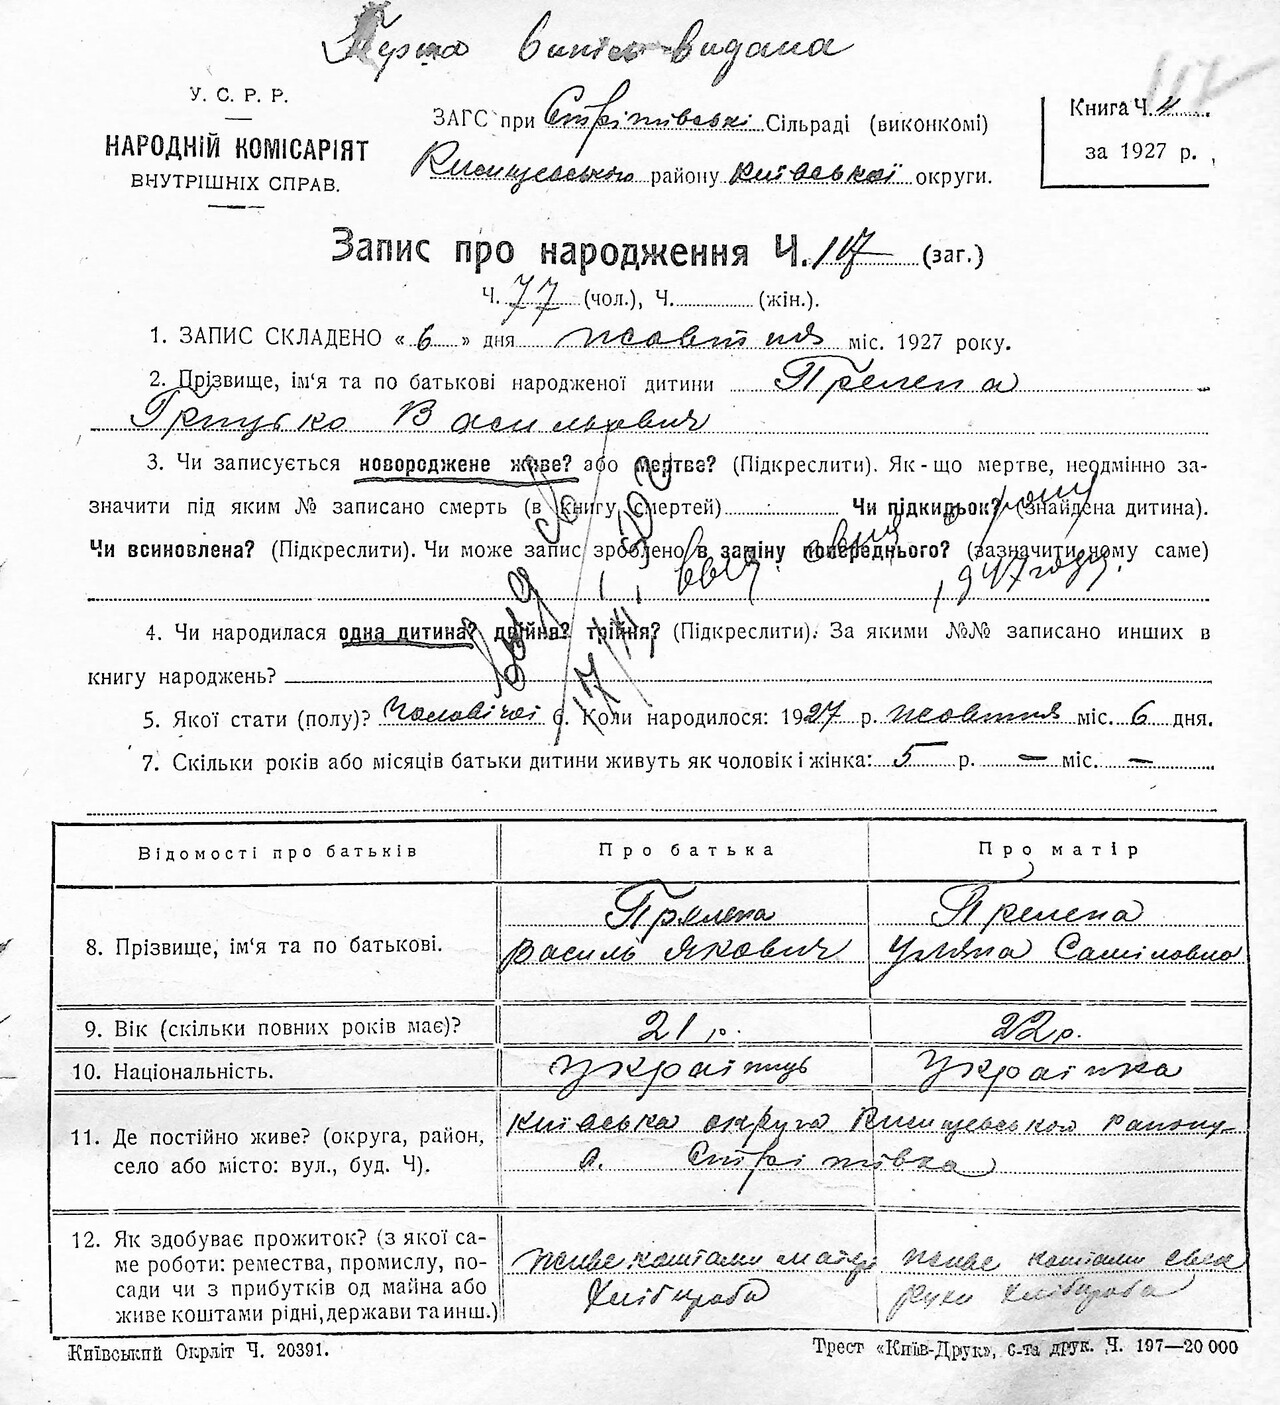 Перша випись видана
117
У. С. Р. Р.
НАРОДНІЙ КОМІСАРІЯТ
ВНУТРІШНІХ СПРАВ.
ЗАГС при Стрітівські Сільраді (виконкомі)
Кисищевського району київської округи.
Книга Ч. 4
за 1927 р.
Запис про народження Ч. 117 (заг.)
Ч. 77 (чол.), Ч. (жін.).
1. ЗАПИС СКЛАДЕНО « 6 » дня жовтня міс. 1927 року.
2. Прізвище, ім'я та по батькові народженої дитини Прелепа
Грицько Васильович
3. Чи записується новороджене живе? або мертве? (Підкреслити). Як-що мертве, неодмінно за-
значити під яким № записано смерть (в книгу смертей) Чи підкидьок? (знайдена дитина).
Чи всиновлена? (Підкреслити). Чи може запис зроблено в заміну попереднього? (зазначити чому саме)
1947 году.
4. Чи народилася одна дитина? двійня? трійня? (Підкреслити). За якими №№ записано инших в
книгу народжень?
5. Якої стати (полу)? Чоловічої 6. Коли народилося: 1927 р. жовтня міс. 6 дня.
7. Скільки років або місяців батьки дитини живуть як чоловік і жінка: 5 р. — міс. —
Відомості про батьків Про батька Про матір
8. Прізвище, ім'я та по батькові. Прялепа Василь Якович Прелепа Уляна Саміловна
9. Вік (скільки повних років має)? 21 р. 22 р.
10. Національність. Українць Українка
11. Де постійно живе? (округа, район, село або місто: вул., буд. Ч). Київська округа Кисищевського району
с. Стрітівка
12. Як здобуває прожиток? (з якої са-
ме роботи: ремества, промислу, по-
сади чи з прибутків од майна або
живе коштами рідні, держави та инш.)
живе коштами матері
Хлібороба
живе коштами свек
рухи Хлібороба
Київський Окрліт Ч. 20391.
Трест «Київ-Друк», 6-та друк. Ч. 197—20 000